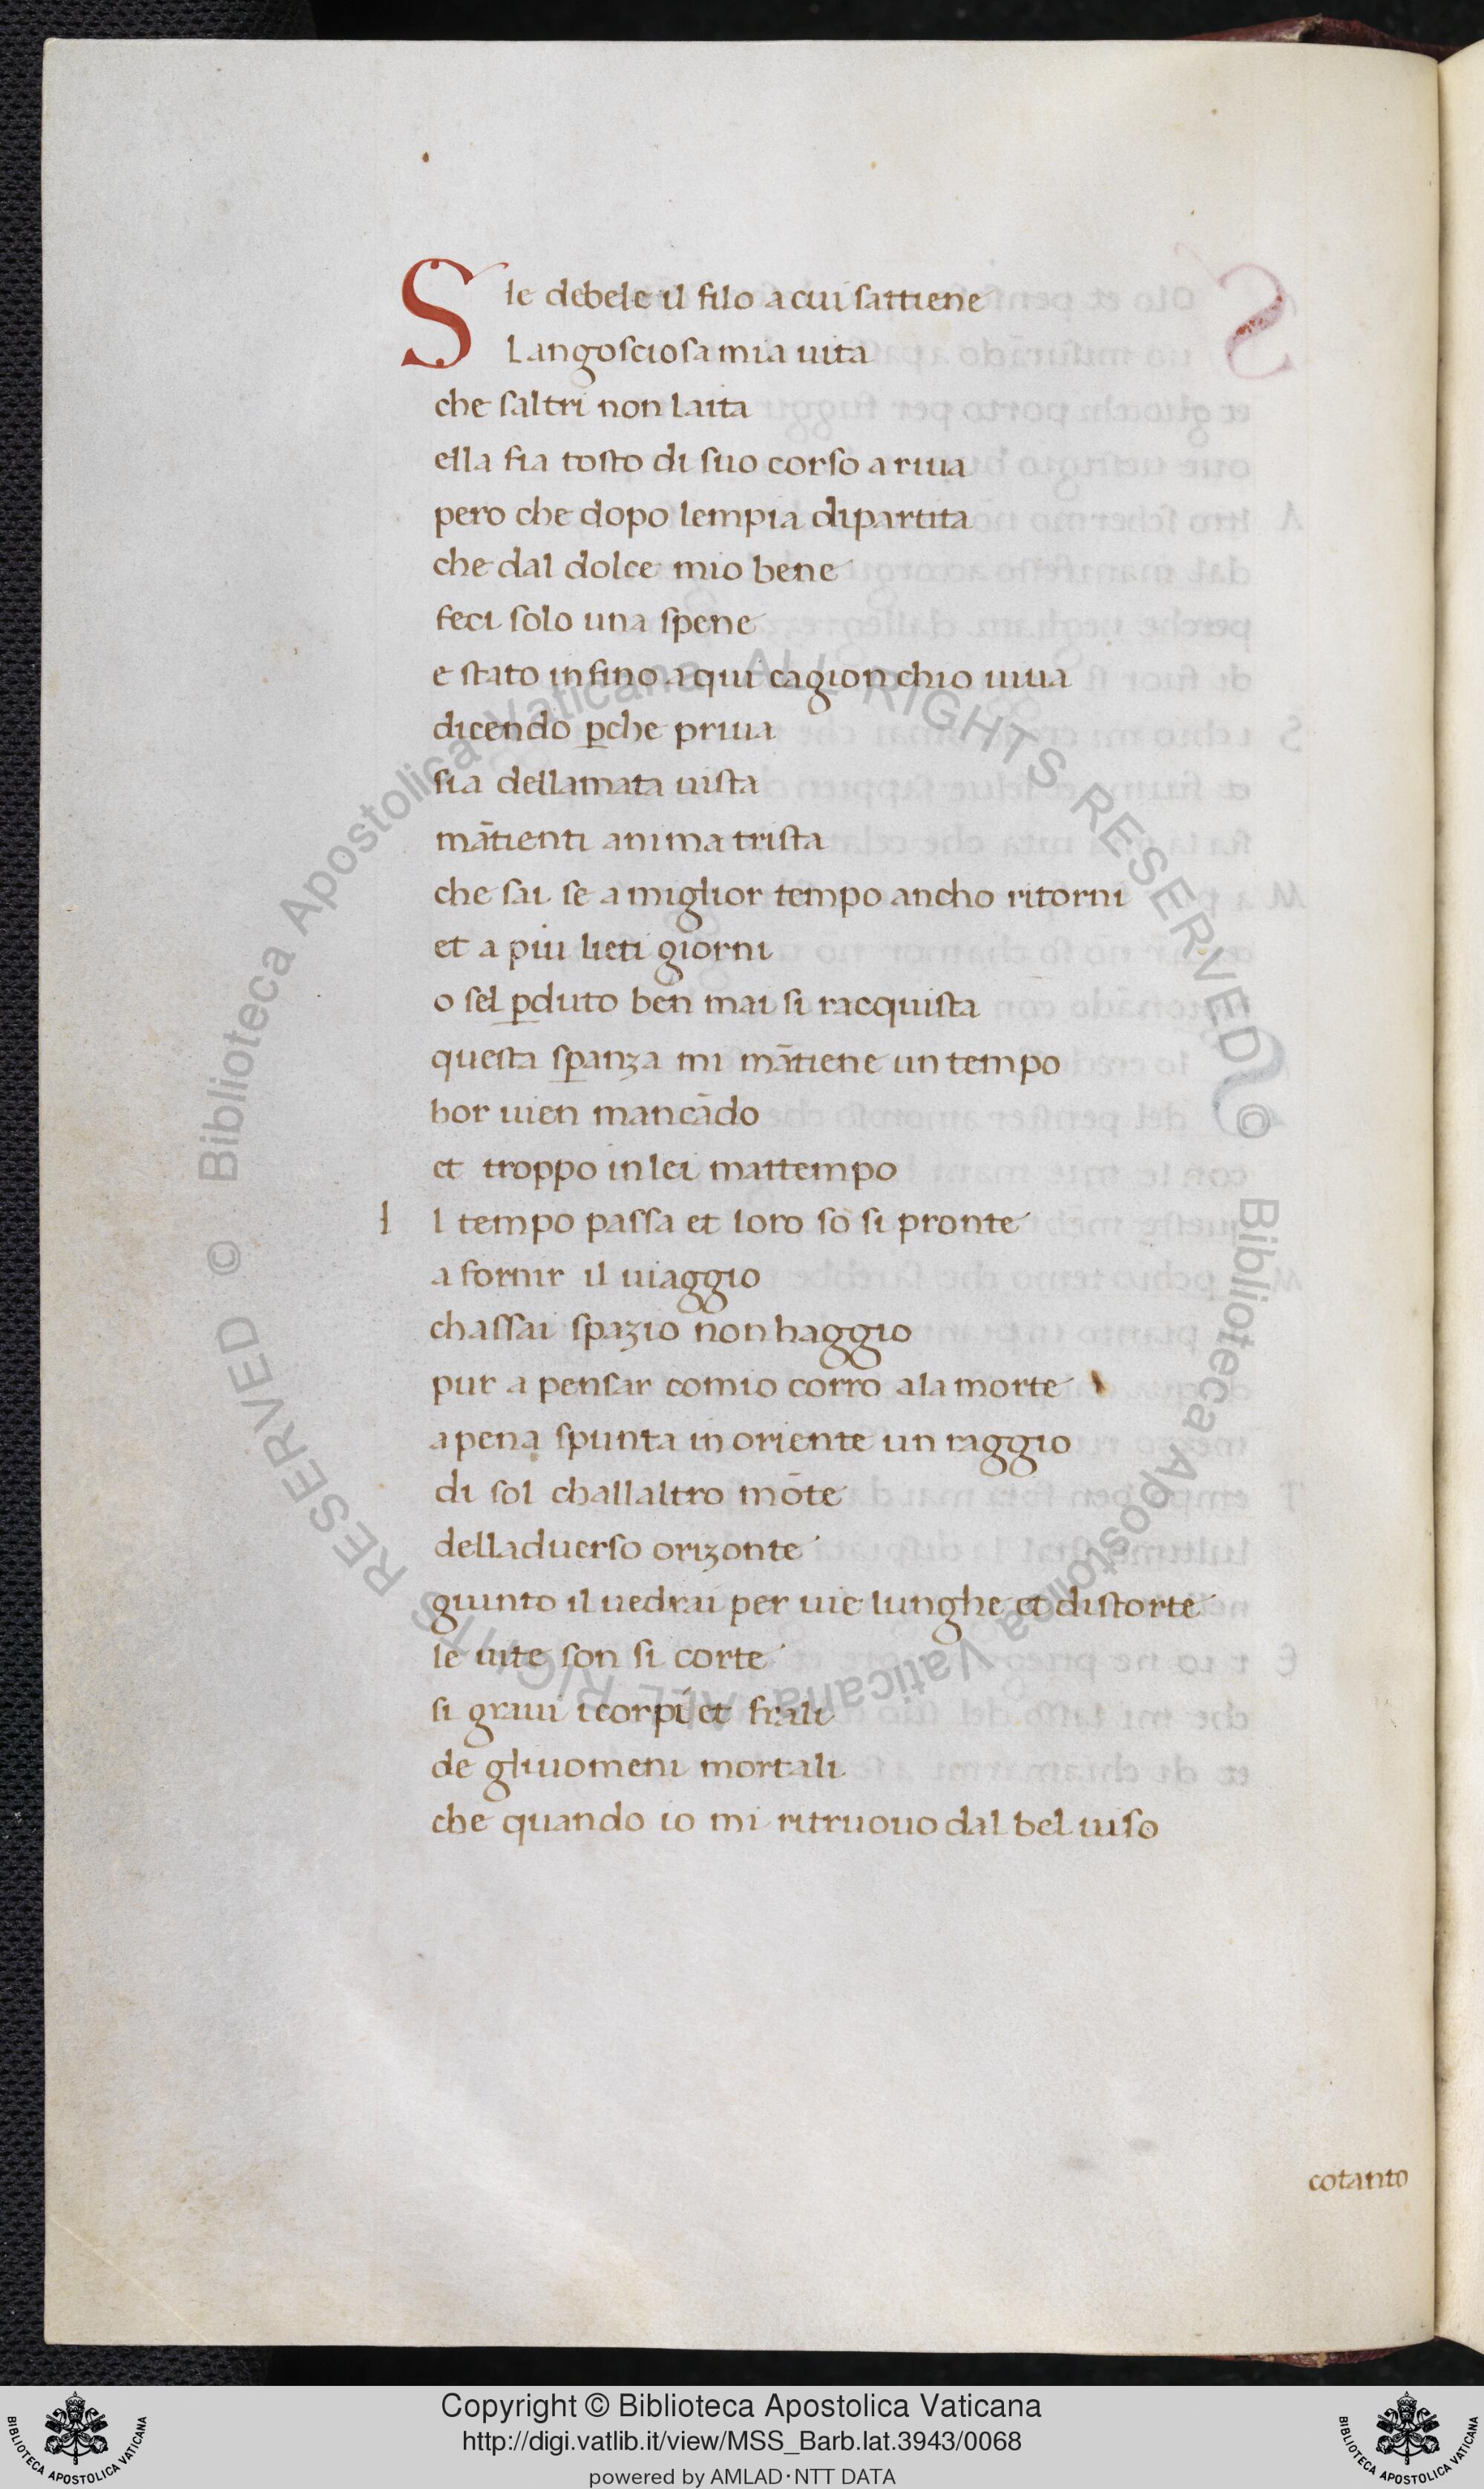 S Ie debele il filo a cui sattiene
Langosciosa mia uita
che saltri non laita
ella fia tosto di suo corso a riua
pero che dopo lempia dipartita
che dal dolce mio bene
feci solo una spene
e stato infino a qui cagion chio uiua
dicendo ꝑche priua
sia dellamata uista
mātienti anima trista
che sai se a miglior tempo ancho ritorni
et a piu lieti giorni
o sel ꝑduto ben mai si racquista
questa sꝑanza mi mātiene un tempo
hor uien mancādo
et troppo in lei mattempo
I l tempo passa et loro sō si pronte
a fornir il uiaggio
chassai spazio non haggio
pur a pensar comio corro ala morte
a pena spunta in oriente un raggio
di sol challaltro mōte
delladuerso orizonte
giunto il uedrai per uie lunghe et distorte
le uite son si corte
si graui i corpi et frali
de gliuomeni mortali
che quando io mi ritruouo dal bel uiso
cotanto
© Biblioteca Apostolica Vaticana ALL RIGHTS RESERVED
© Biblioteca Apostolica Vaticana ALL RIGHTS RESERVED
BIBLIOTECA APOSTOLICA VATICANA
Copyright © Biblioteca Apostolica Vaticana
http://digi.vatlib.it/view/MSS_Barb.lat.3943/0068
powered by AMLAD·NTT DATA
BIBLIOTECA APOSTOLICA VATICANA